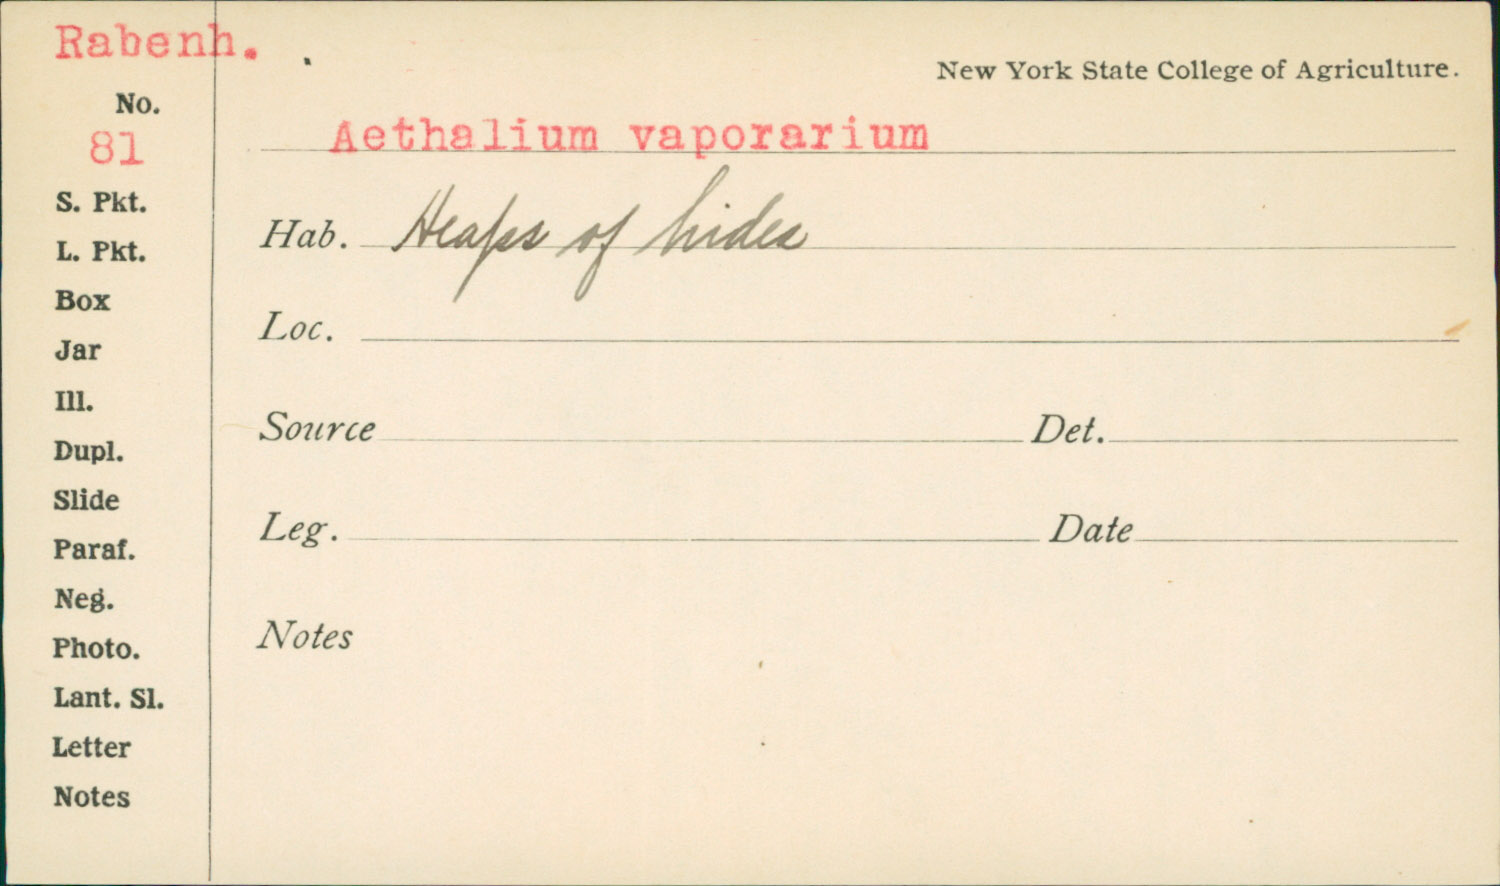 Rabenh.
New York State College of Agriculture.
No.
81
Aethalium vaporarium
S. Pkt.
Hab. Heaps of hides
L. Pkt.
Box
Loc.
Jar
Ill.
Source Det.
Dupl.
Slide
Leg. Date
Paraf.
Neg.
Notes
Photo.
Lant. Sl.
Letter
Notes